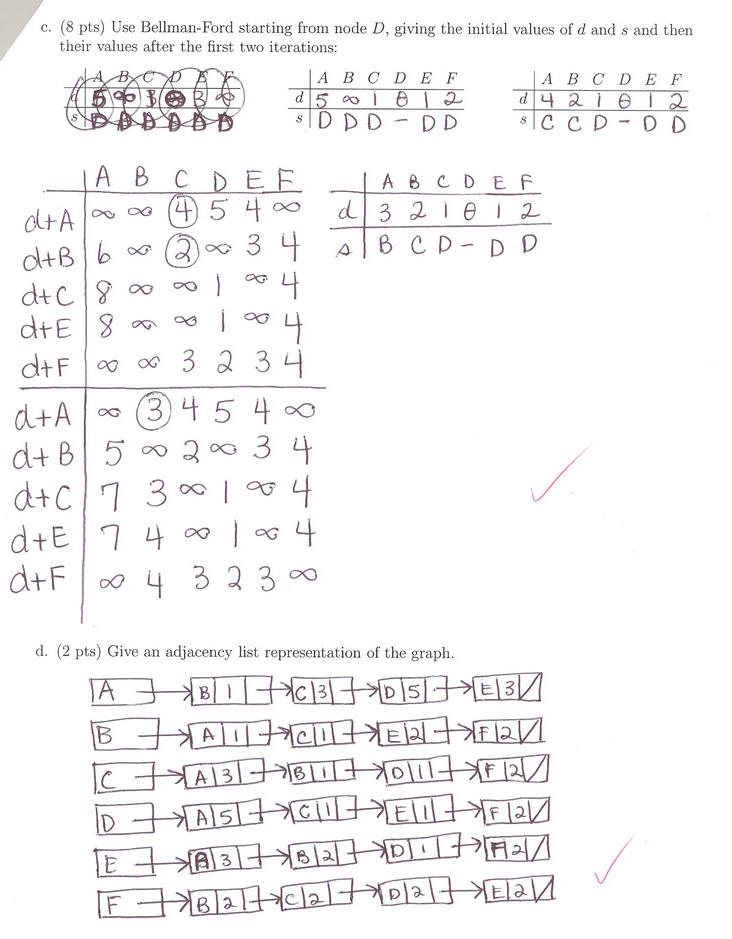 c. (8 pts) Use Bellman-Ford starting from node D, giving the initial values of d and s and then
their values after the first two iterations:
A B C D E F
A B C D E F
d 5 ∞ 1 0 1 2
s D D D – D D
A B C D E F
d 4 2 1 0 1 2
s C C D – D D
A B C D E F
d+A ∞ ∞ 4 5 4 ∞
d+B 6 ∞ 2 ∞ 3 4
d+C 8 ∞ ∞ 1 ∞ 4
d+E 8 ∞ ∞ 1 ∞ 4
d+F ∞ ∞ 3 2 3 4
A B C D E F
d 3 2 1 0 1 2
s B C D – D D
d+A ∞ 3 4 5 4 ∞
d+B 5 ∞ 2 ∞ 3 4
d+C 7 3 ∞ 1 ∞ 4
d+E 7 4 ∞ 1 ∞ 4
d+F ∞ 4 3 2 3 ∞
d. (2 pts) Give an adjacency list representation of the graph.
A B 1 C 3 D 5 E 3
B A 1 C 1 E 2 F 2
C A 3 B 1 D 1 F 2
D A 5 C 1 E 1 F 2
E A 3 B 2 D 1 F 2
F B 2 C 2 D 2 E 2